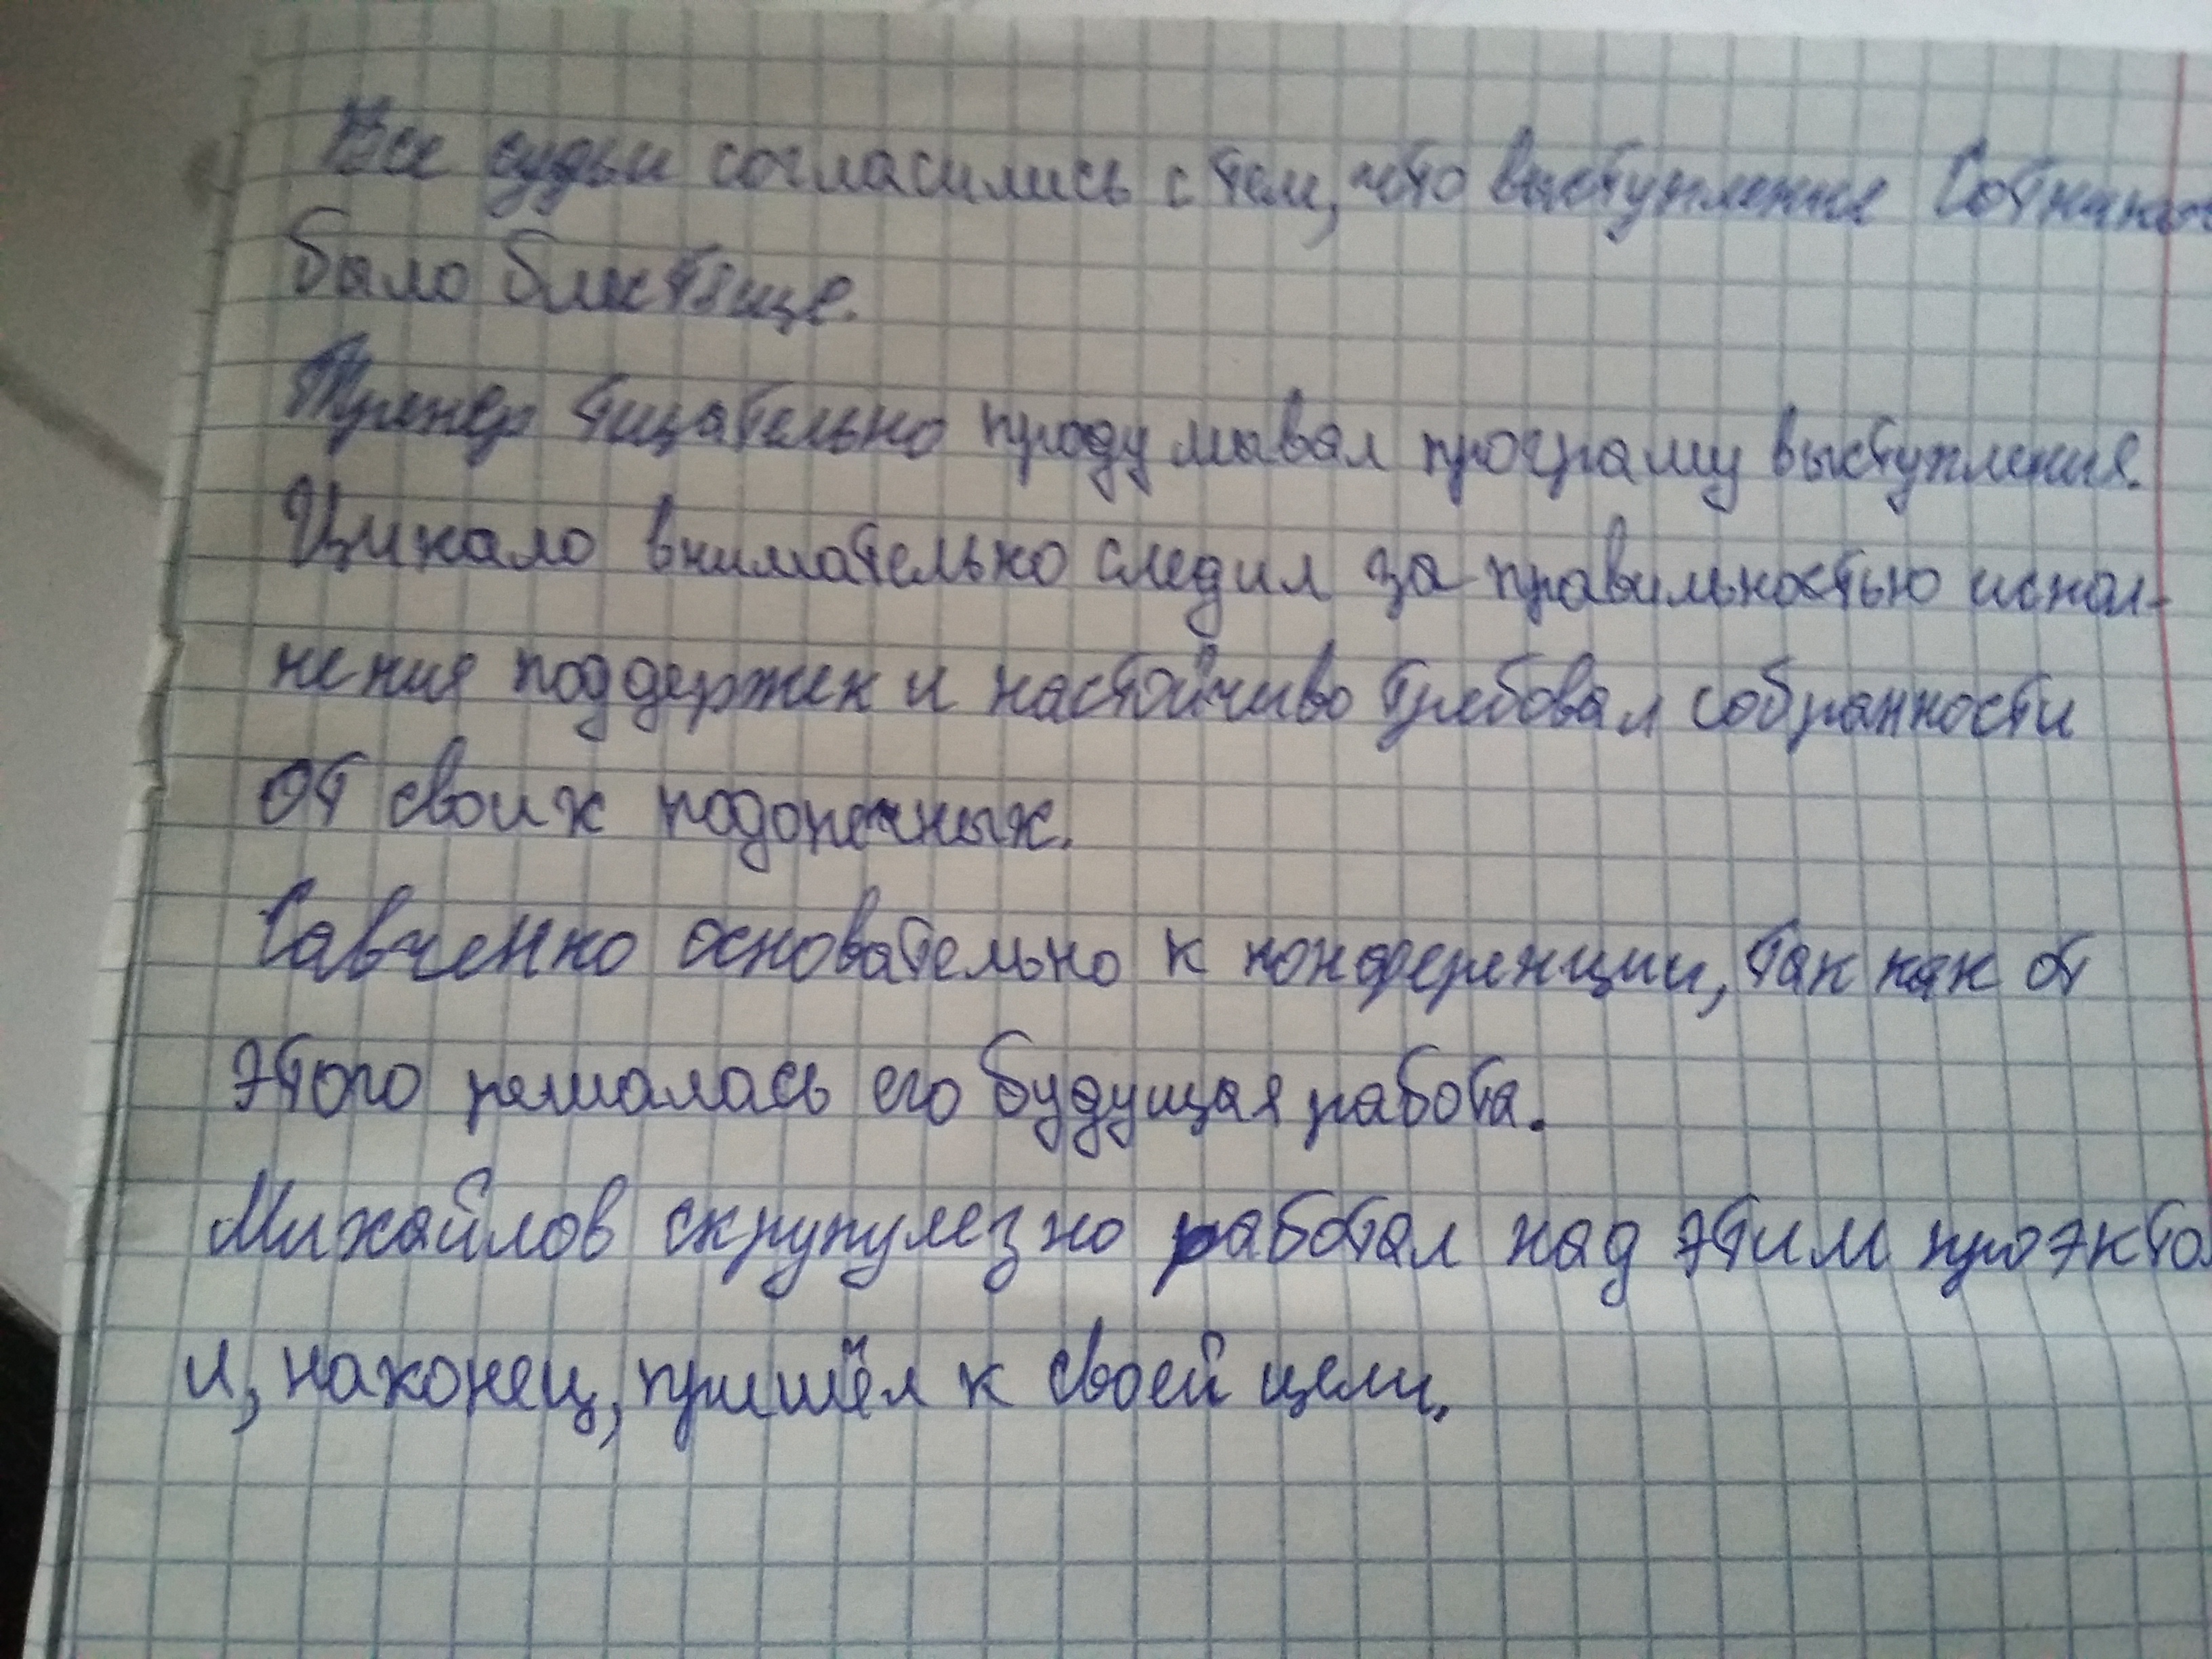 Все судьи согласились с тем, что выступление
было блестяще.
Тренер тщательно продумывал програму выступления.
Цикало внимательно следил за правильностью испол-
нения поддержек и настойчиво требовал собранности
от своих подопечных.
Савченко основательно к конференции, так как от
этого решалась его будущая работа.
Михайлов скрупулезно работал над этим проэктом
и, наконец, пришёл к своей цели.